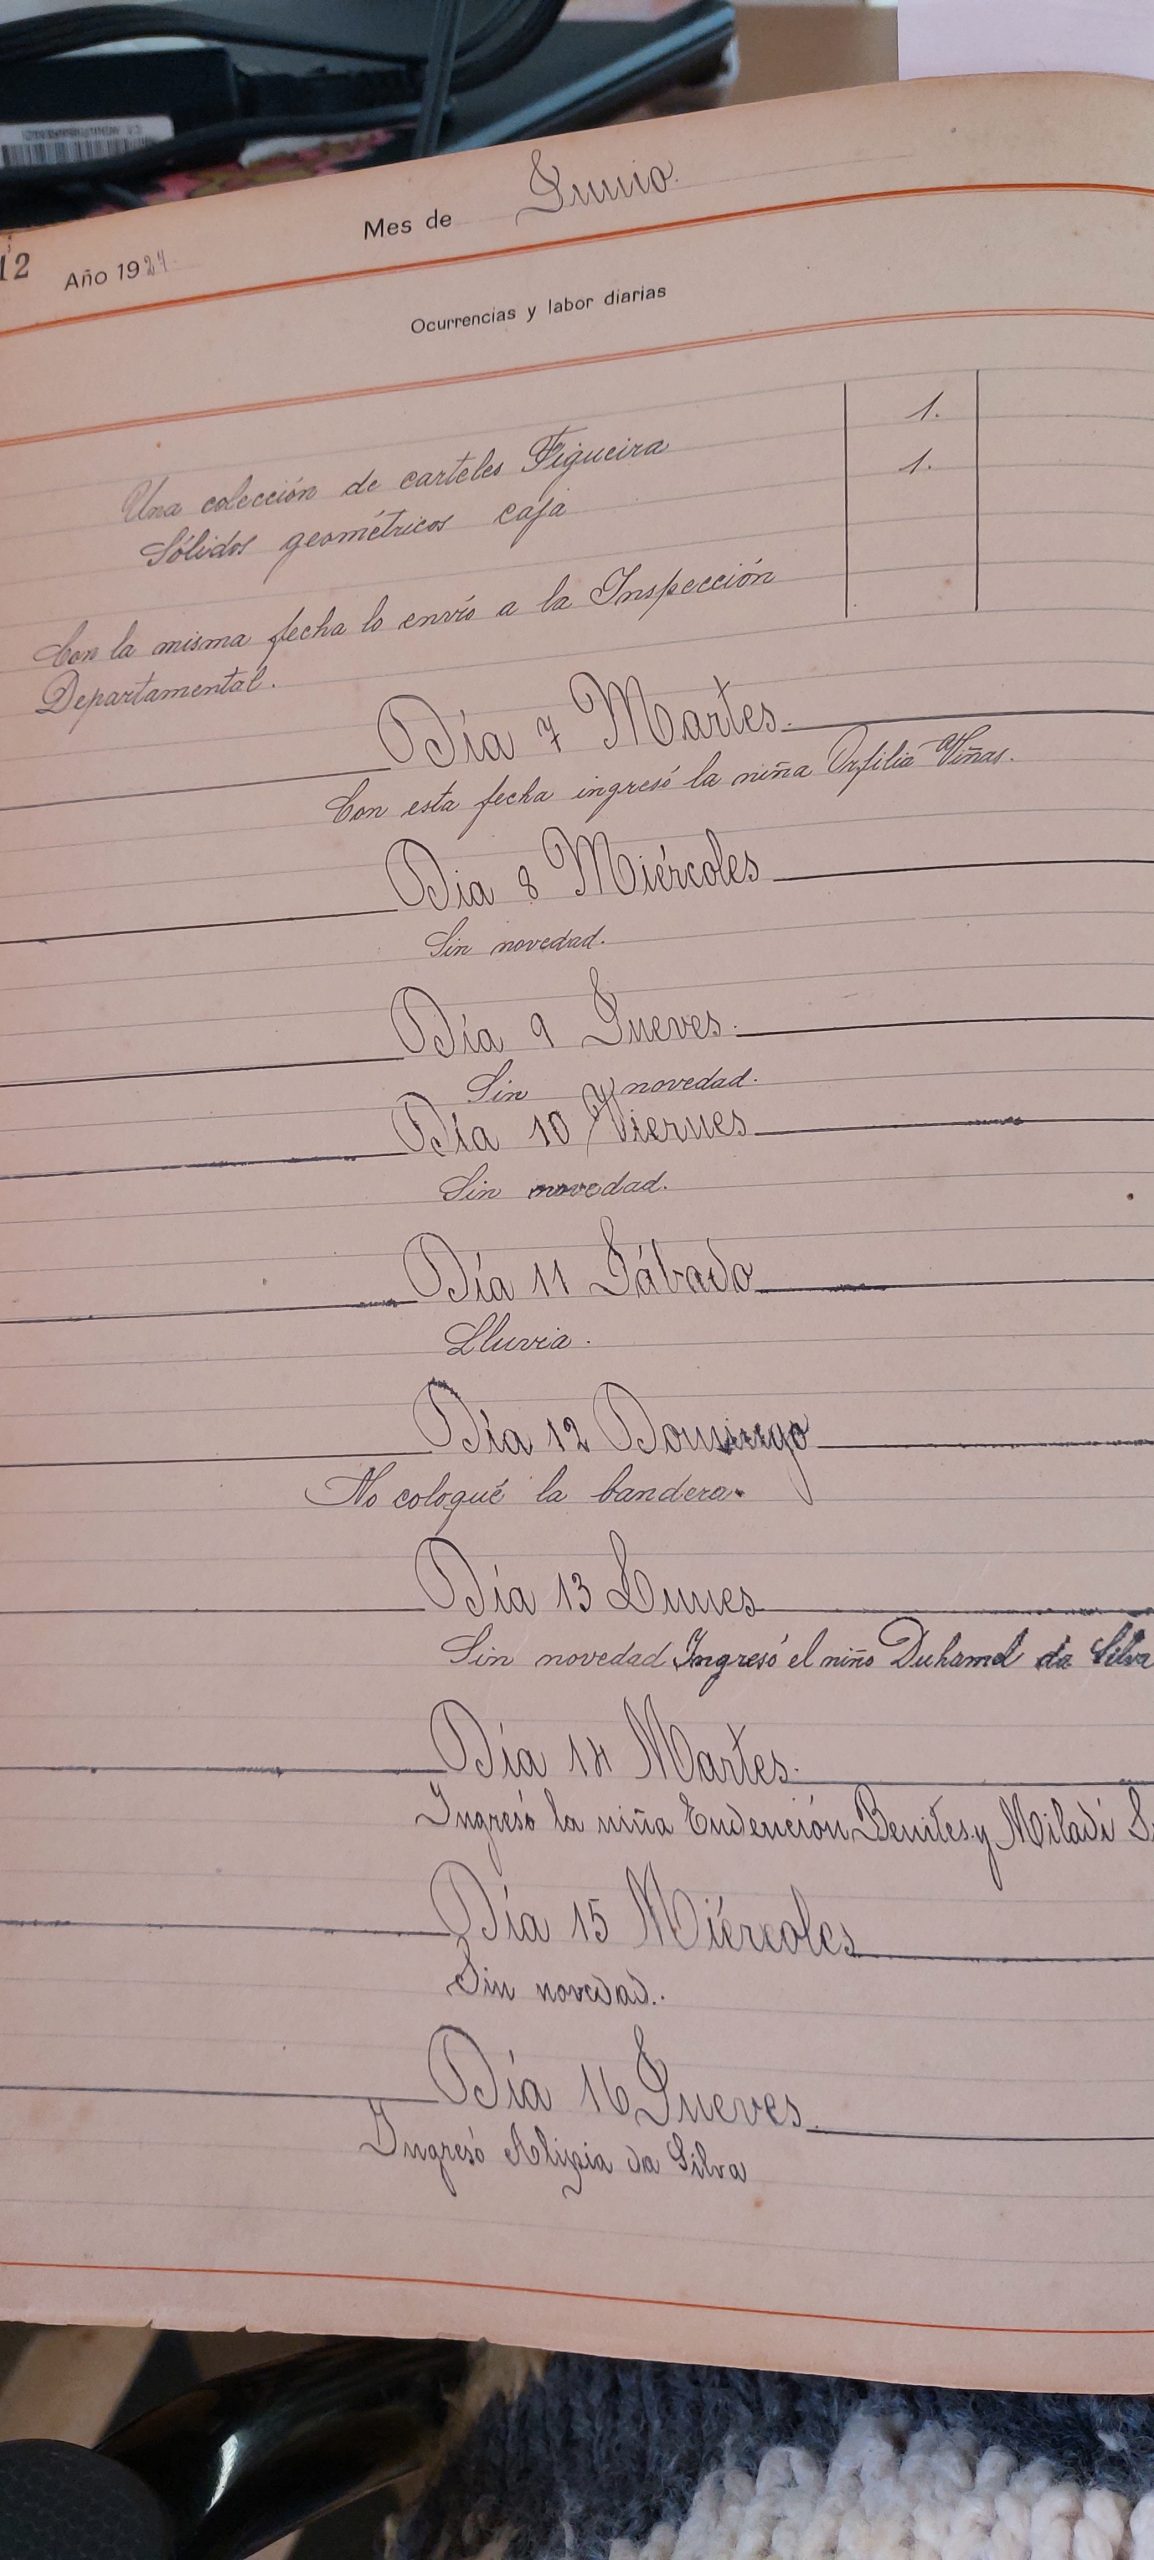 Mes de Junio.
12 Año 1927
Ocurrencias y labor diarias
Una colección de carteles Figueira 1.
Sólidos geométricos caja 1.
Con la misma fecha lo envío a la Inspección
Departamental.
Día 7 Martes.
Con esta fecha ingresó la niña Orfilia Viñas.
Dia 8 Miércoles
Sin novedad.
Día 9 Jueves.
Sin novedad.
Día 10 Viernes
Sin novedad.
Día 11 Sábado
Lluvia.
Día 12 Domingo
No coloqué la bandera.
Día 13 Lunes
Sin novedad Ingresó el niño Duhamel da Silva
Día 14 Martes.
Ingresó la niña Benites y Miladi
Día 15 Miércoles
Sin novedad.
Día 16 Jueves.
Ingresó Alipia da Silva